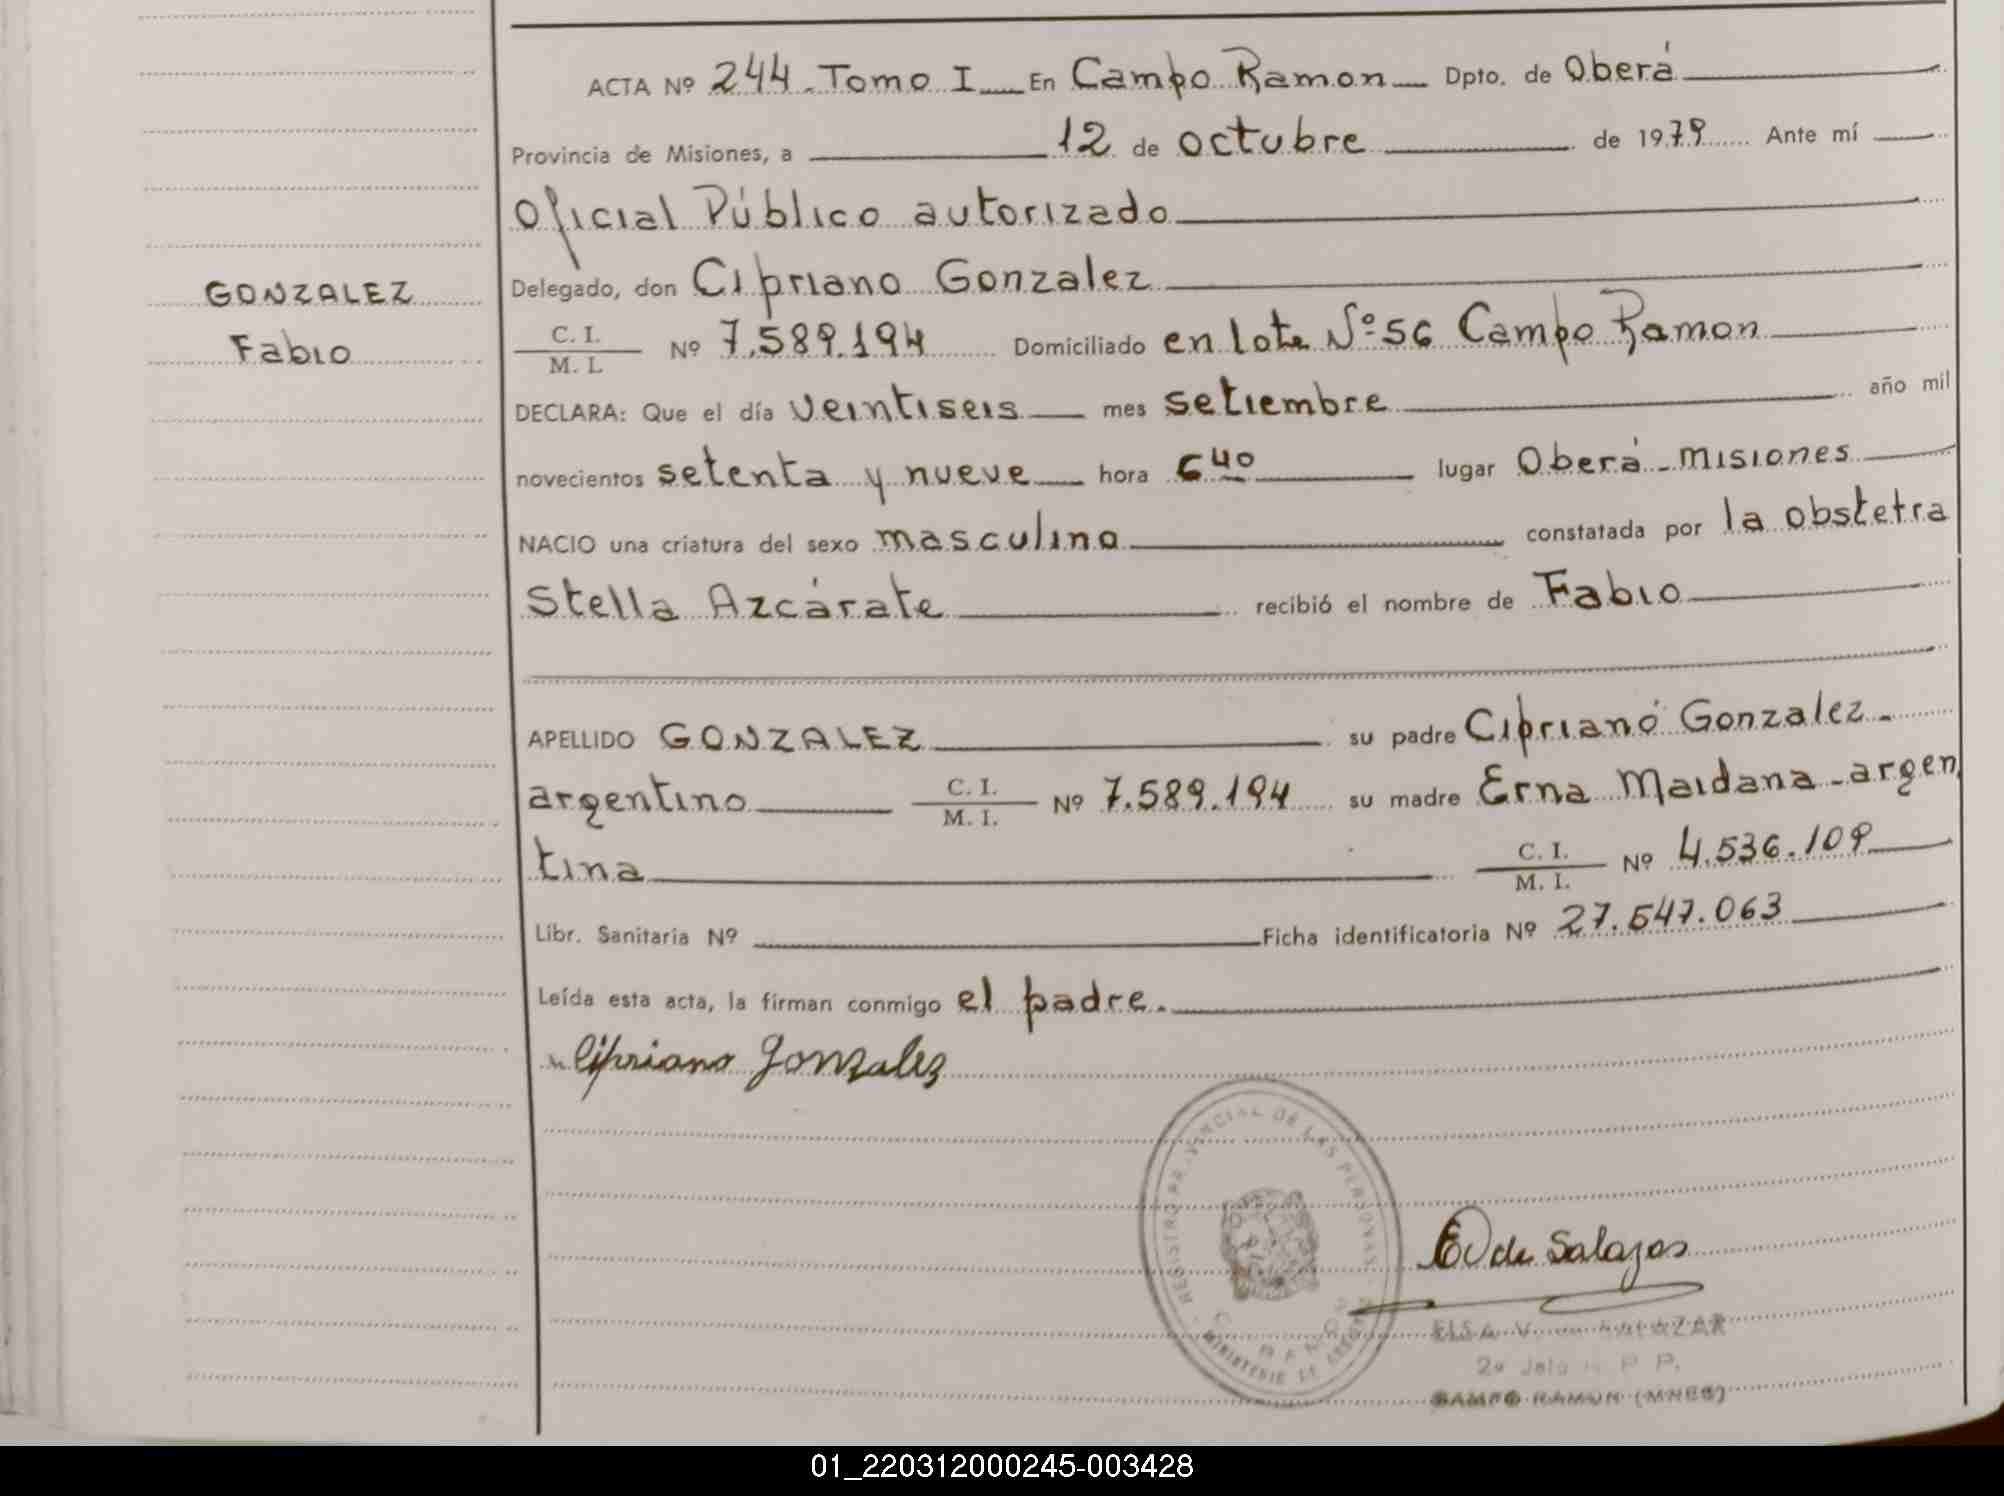 ACTA Nº 244. Tomo I En Campo Ramon Dpto. de Oberá
Provincia de Misiones, a 12 de octubre de 1979 Ante mí
Oficial Público autorizado
Delegado, don Cipriano Gonzalez
GONZALEZ
Fabio
C. I.
M. I. Nº 7.589.194 Domiciliado en lote Nº 56 Campo Ramon
DECLARA: Que el día veintiseis mes setiembre año mil
novecientos setenta y nueve hora 6 40 lugar Oberá - misiones
NACIO una criatura del sexo masculino constatada por la obstetra
Stella Azcárate recibió el nombre de Fabio
APELLIDO GONZALEZ su padre Cipriano Gonzalez -
argentino C. I.
M. I. Nº 7.589.194 su madre Erna Maidana - argen
tina C. I.
M. I. Nº 4.536.109
Libr. Sanitaria Nº Ficha identificatoria Nº 27.547.063
Leída esta acta, la firman conmigo el padre.
Cipriano Gonzalez
REGISTRO PROVINCIAL DE LAS PERSONAS
MINISTERIO DE
de Salazar
ELSA V. SALAZAR
CAMPO RAMON (MNES)
01_220312000245-003428